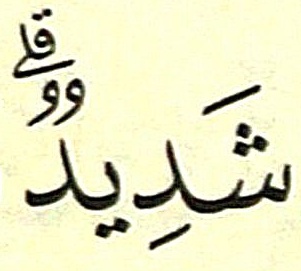 شَدِيدٌ ۗ